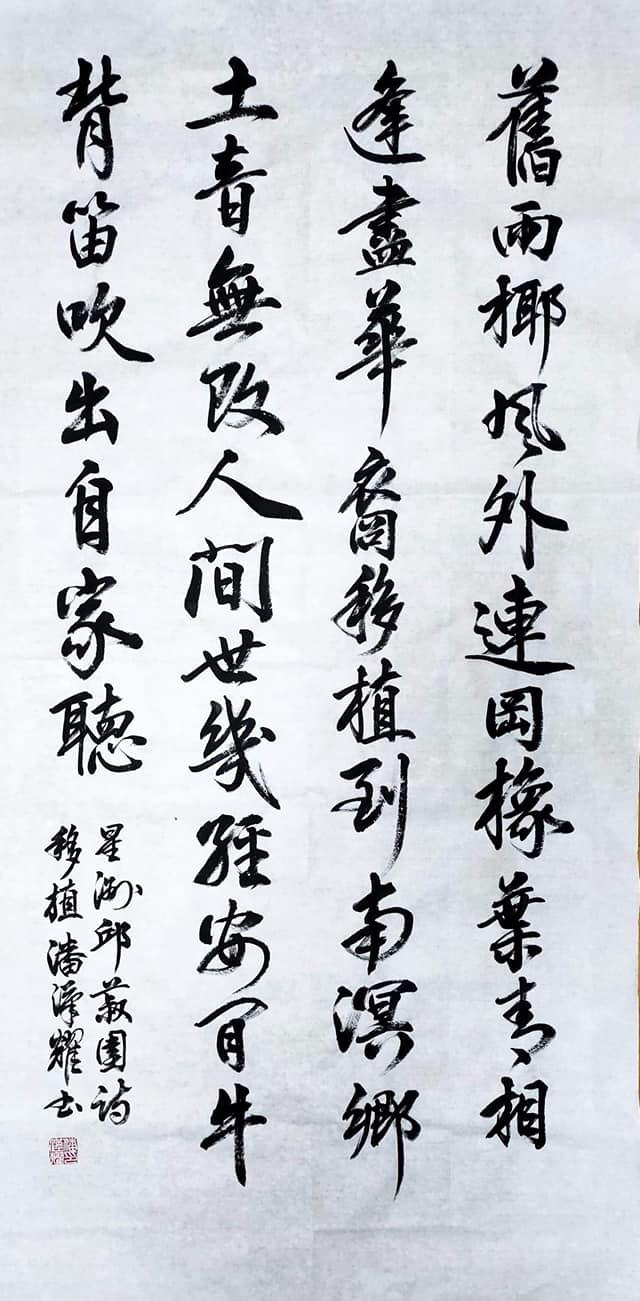 舊雨椰风外連岡橡葉青相
逢盡華裔移植到南溟鄉
土音無改人間世幾經安眉牛
背笛吹出自家聽
星洲邱菽園詩
移植潘澤耀书